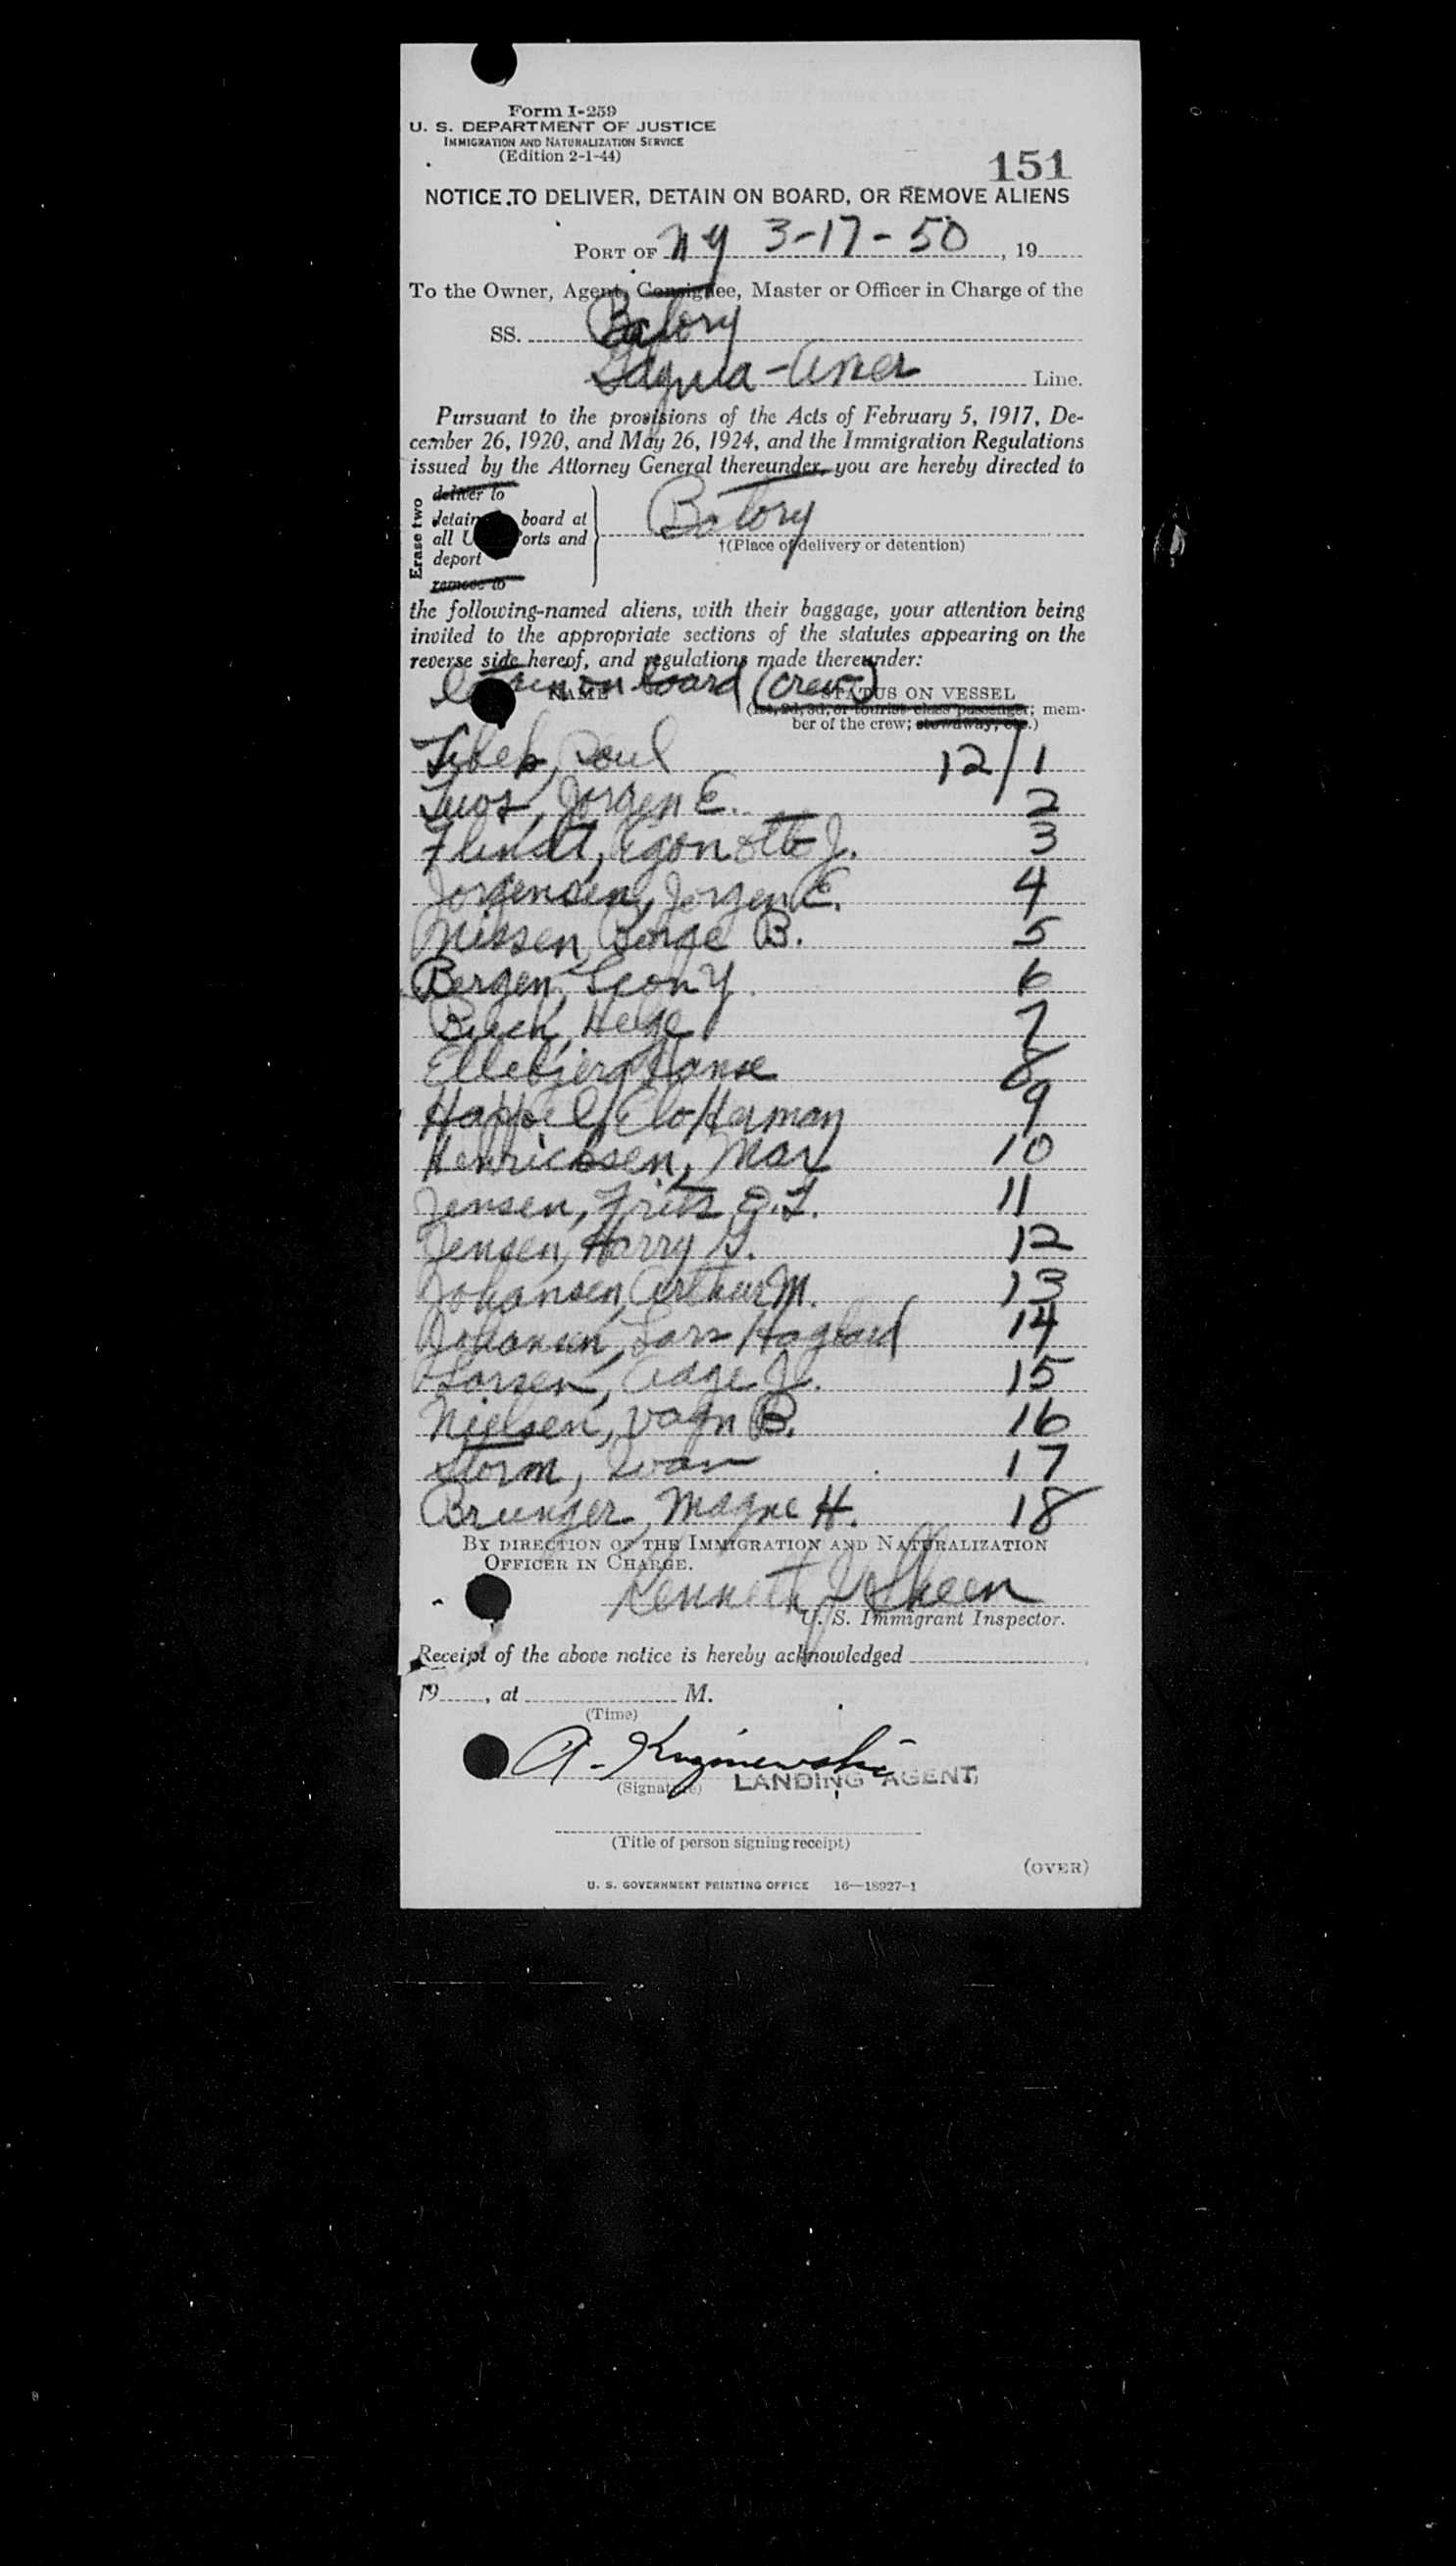 Form I-259
U. S. DEPARTMENT OF JUSTICE
IMMIGRATION AND NATURALIZATION SERVICE
(Edition 2-1-44)
151
NOTICE TO DELIVER, DETAIN ON BOARD, OR REMOVE ALIENS
PORT OF NY 3-17-50, 19
To the Owner, Agent, Consignee, Master or Officer in Charge of the
SS. Batory
Line.
Pursuant to the provisions of the Acts of February 5, 1917, De-
cember 26, 1920, and May 26, 1924, and the Immigration Regulations
issued by the Attorney General thereunder, you are hereby directed to
Erase two
deliver to
detain board at
all U orts and
deport
remove to
Batory
†(Place of delivery or detention)
the following-named aliens, with their baggage, your attention being
invited to the appropriate sections of the statutes appearing on the
reverse side hereof, and regulations made thereunder:
on board (crew)
NAME STATUS ON VESSEL
(1st, 2d, 3d, or tourist class passenger; mem-
ber of the crew; stowaway, etc.)
Poul 12/1
Jorgen E. 2
Egon Otto J. 3
Jorgensen, Jorgen E. 4
Nissen, Borge B. 5
Bergen, Leon Y. 6
Helge 7
Ellebjerg, Hans 8
Happel, Elo Herman 9
Henricksen, Max 10
Jensen, Fritz E.L. 11
Jensen, Harry G. 12
Johansen, Arthur M. 13
Johansen, Lars 14
Larsen, Aage J. 15
Nielsen, Vagn B. 16
Storm, Ivan 17
Magne H. 18
BY DIRECTION OF THE IMMIGRATION AND NATURALIZATION
OFFICER IN CHARGE.
Kenneth J Sheen
U. S. Immigrant Inspector.
Receipt of the above notice is hereby acknowledged
19, at M.
(Time)
A.
(Signature) LANDING AGENT
(Title of person signing receipt)
(OVER)
U. S. GOVERNMENT PRINTING OFFICE 16—18927-1